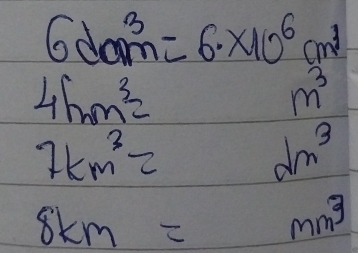 6dam³= 6·×10⁶ cm³
4hm³= m³
7km³ = dm³
8km = mm³